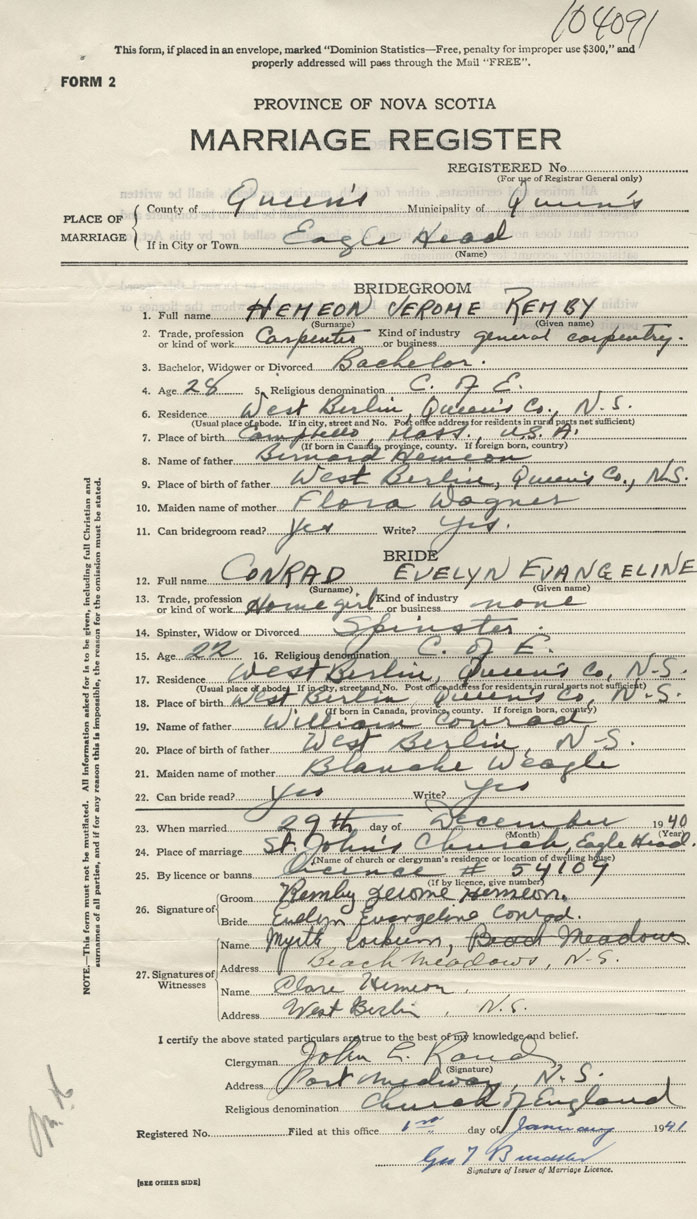 104091
This form, if placed in an envelope, marked "Dominion Statistics—Free, penalty for improper use $300," and
properly addressed will pass through the Mail "FREE".
FORM 2
PROVINCE OF NOVA SCOTIA
MARRIAGE REGISTER
REGISTERED No
(For use of Registrar General only)
PLACE OF MARRIAGE
County of Queen's Municipality of Queen's
If in City or Town Eagle Head
(Name)
BRIDEGROOM
1. Full name HEMEON JEROME REMBY
(Surname) (Given name)
2. Trade, profession or kind of work Carpenter Kind of industry or business general carpentry.
3. Bachelor, Widower or Divorced Bachelor.
4. Age 28 5. Religious denomination C. of E.
6. Residence West Berlin, Queen's Co., N.S.
(Usual place of abode. If in city, street and No. Post office address for residents in rural parts not sufficient)
7. Place of birth Campello, Mass., U.S.A.
(If born in Canada, province, county. If foreign born, country)
8. Name of father Bernard Hemeon
9. Place of birth of father West Berlin, Queen's Co., N.S.
10. Maiden name of mother Flora Wagner
11. Can bridegroom read? Yes Write? Yes.
BRIDE
12. Full name CONRAD EVELYN EVANGELINE
(Surname) (Given name)
13. Trade, profession or kind of work Home girl Kind of industry or business none
14. Spinster, Widow or Divorced Spinster.
15. Age 22 16. Religious denomination C. of E.
17. Residence West Berlin, Queen's Co, N.S.
(Usual place of abode. If in city, street and No. Post office address for residents in rural parts not sufficient)
18. Place of birth West Berlin Queens Co, N.S.
(If born in Canada, province, county. If foreign born, country)
19. Name of father William Conrad
20. Place of birth of father West Berlin, N.S.
21. Maiden name of mother Blanche Weagle
22. Can bride read? Yes Write? Yes
23. When married 29th day of December 1940
(Month) (Year)
24. Place of marriage St. John's Church, Eagle Head.
(Name of church or clergyman's residence or location of dwelling house)
25. By licence or banns Licence # 54109
(If by licence, give number)
26. Signature of
Groom Remby Jerome Hemeon.
Bride Evelyn Evangeline Conrad.
27. Signatures of Witnesses
Name Myrtle Beach Meadows
Address Beach Meadows, N.S.
Name Clare Hemeon.
Address West Berlin, N.S.
I certify the above stated particulars are true to the best of my knowledge and belief.
Clergyman John L. Rand
(Signature)
Address Port Medway, N.S.
Religious denomination Church of England
Registered No. Filed at this office 1st day of January 1941
Geo T
Signature of Issuer of Marriage Licence.
[SEE OTHER SIDE]
NOTE.—This form must not be mutilated. All information asked for is to be given, including full Christian and
surnames of all parties, and if for any reason this is impossible, the reason for the omission must be stated.